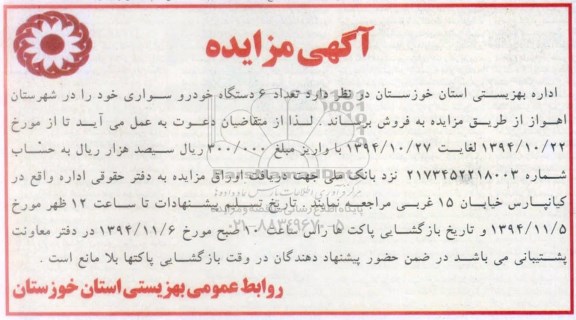 آگهی مزایده
اداره بهزیستی استان خوزستان در نظر دارد تعداد ۶ دستگاه خودرو سواری خود را در شهرستان
اهواز از طریق مزایده به فروش برساند . لذا از متقاضیان دعوت به عمل می آید تا از مورخ
۱۳۹۴/۱۰/۲۲ لغایت ۱۳۹۴/۱۰/۲۷ با واریز مبلغ ۳۰۰/۰۰۰ ریال سیصد هزار ریال به حساب
شماره ۲۱۷۳۴۵۲۲۱۸۰۰۳ نزد بانک ملی جهت دریافت اوراق مزایده به دفتر حقوقی اداره واقع در
کیانپارس خیابان ۱۵ غربی مراجعه نمایند . تاریخ تسلیم پیشنهادات تا ساعت ۱۲ ظهر مورخ
۱۳۹۴/۱۱/۵ و تاریخ بازگشایی پاکت ها راس ساعت ۱۰ صبح مورخ ۱۳۹۴/۱۱/۶ در دفتر معاونت
پشتیبانی می باشد در ضمن حضور پیشنهاد دهندگان در وقت بازگشایی پاکتها بلا مانع است .
روابط عمومی بهزیستی استان خوزستان